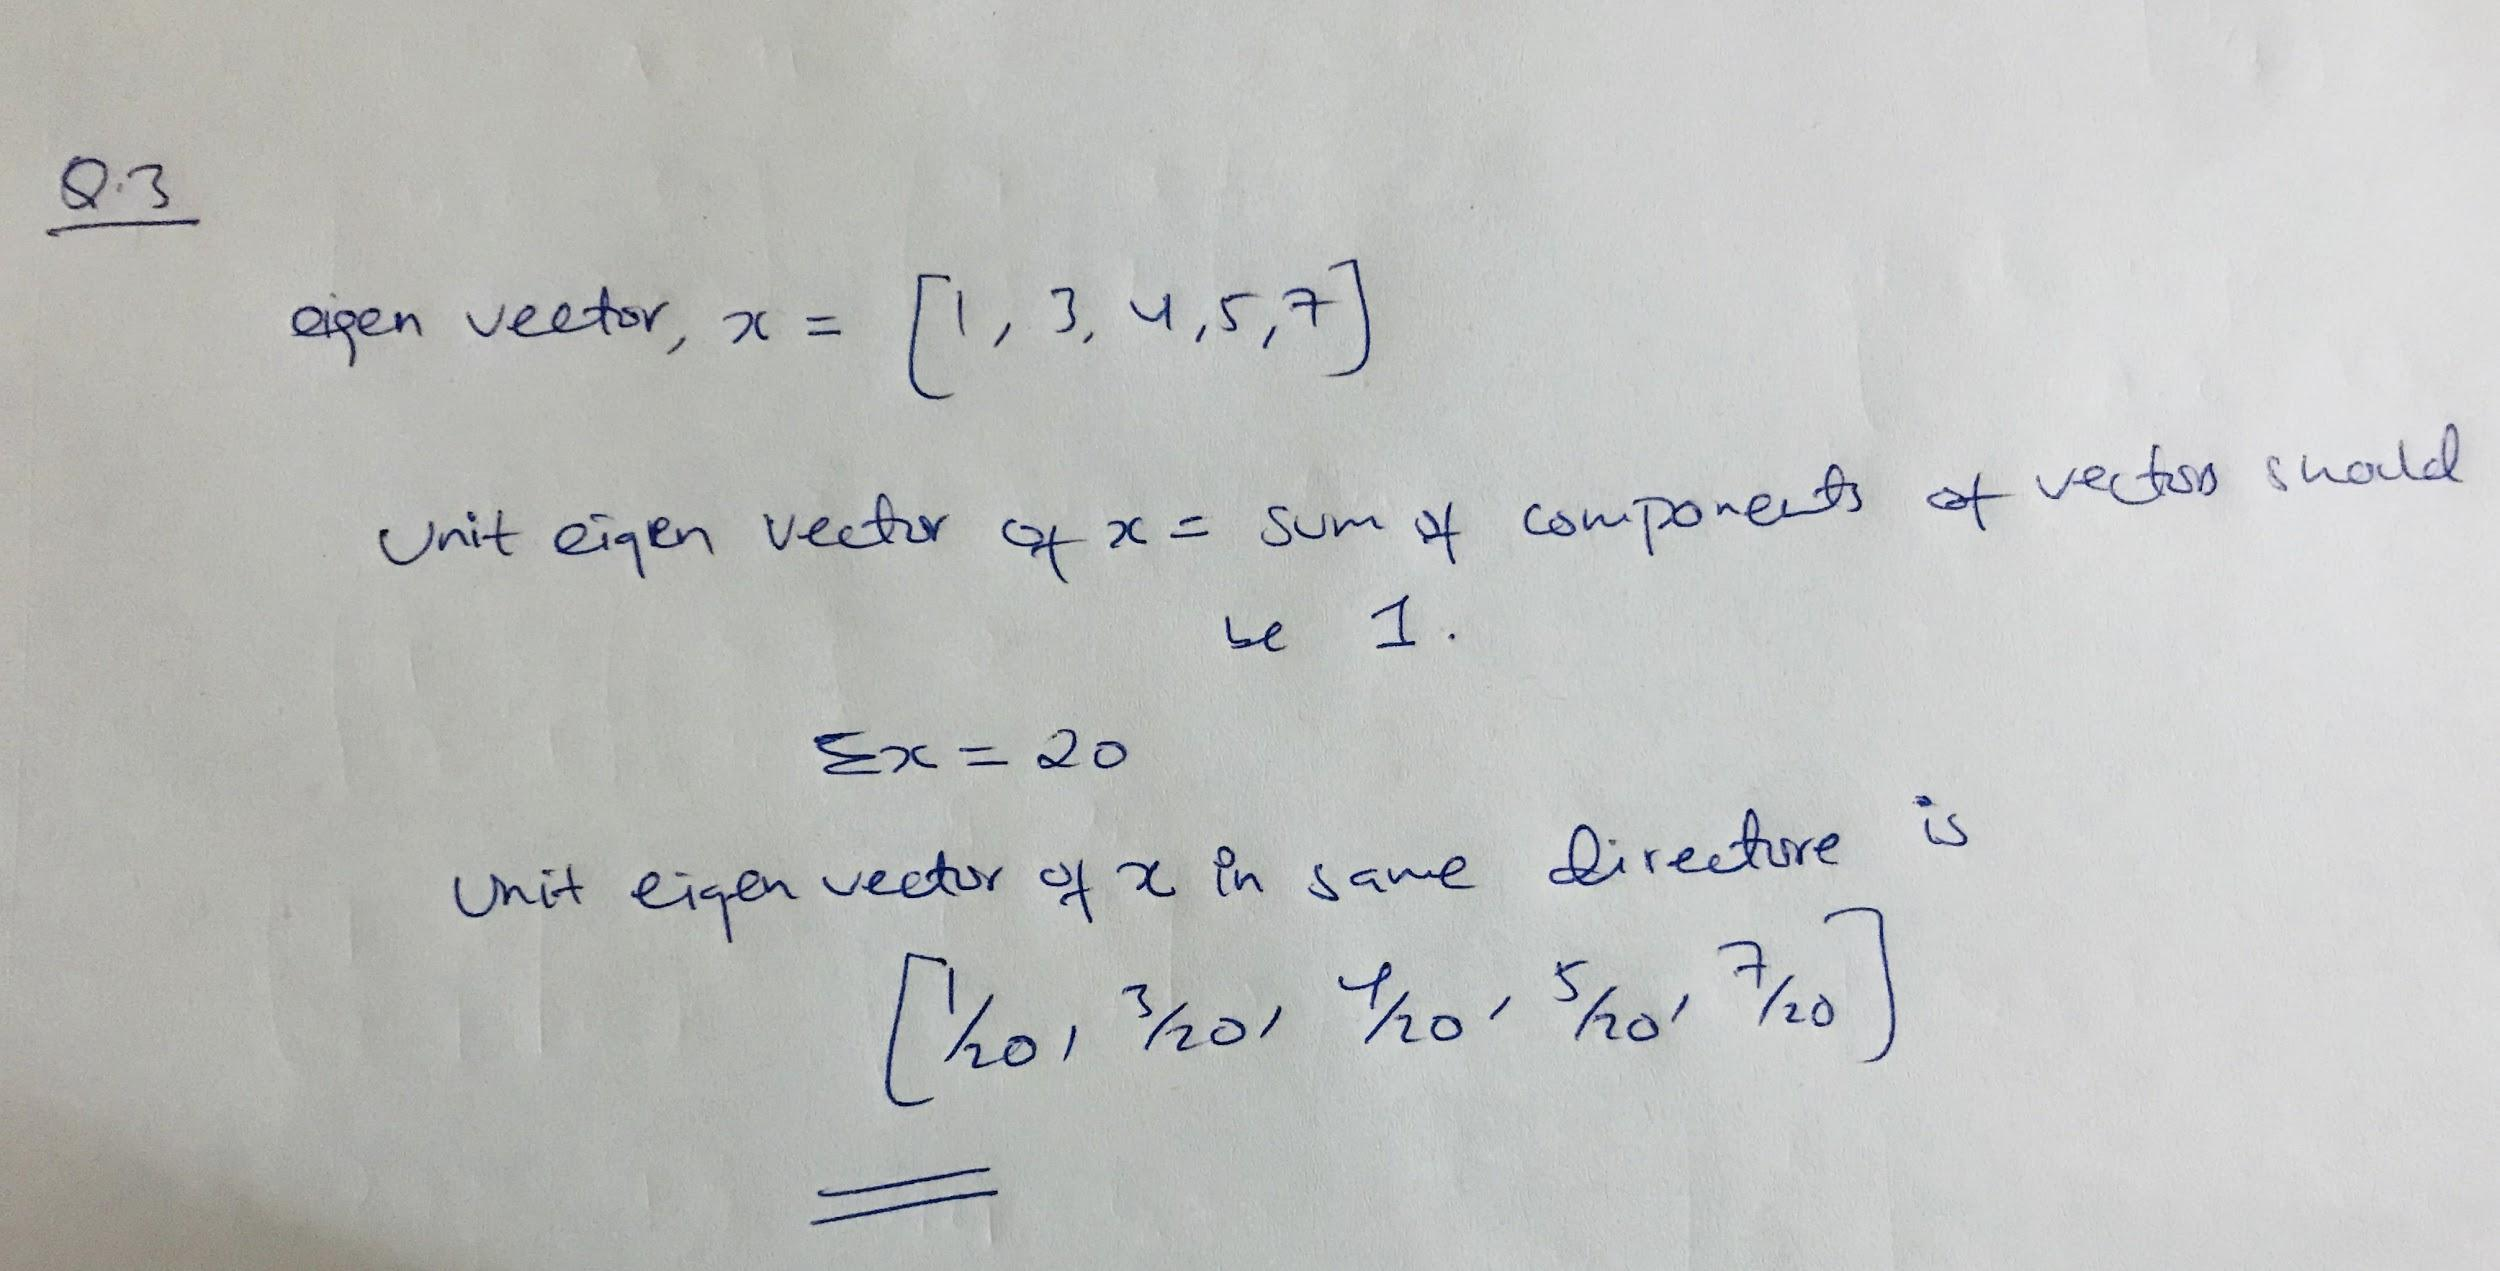 Q.3
eigen vector, x = [1, 3, 4, 5, 7]
Unit eigen vector of x = sum of components of vectors should
be 1.
Σx = 20
Unit eigen vector of x in same directore is
[1/20, 3/20, 4/20, 5/20, 7/20]